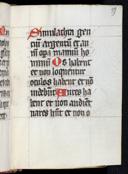 Simulachra gen
cium argentū et au
rū opa manuū ho
minū Os habent
et non loquentur
oculos habent et nō
videbūt Aures ha
bent et non audiēt
nares habent et non o